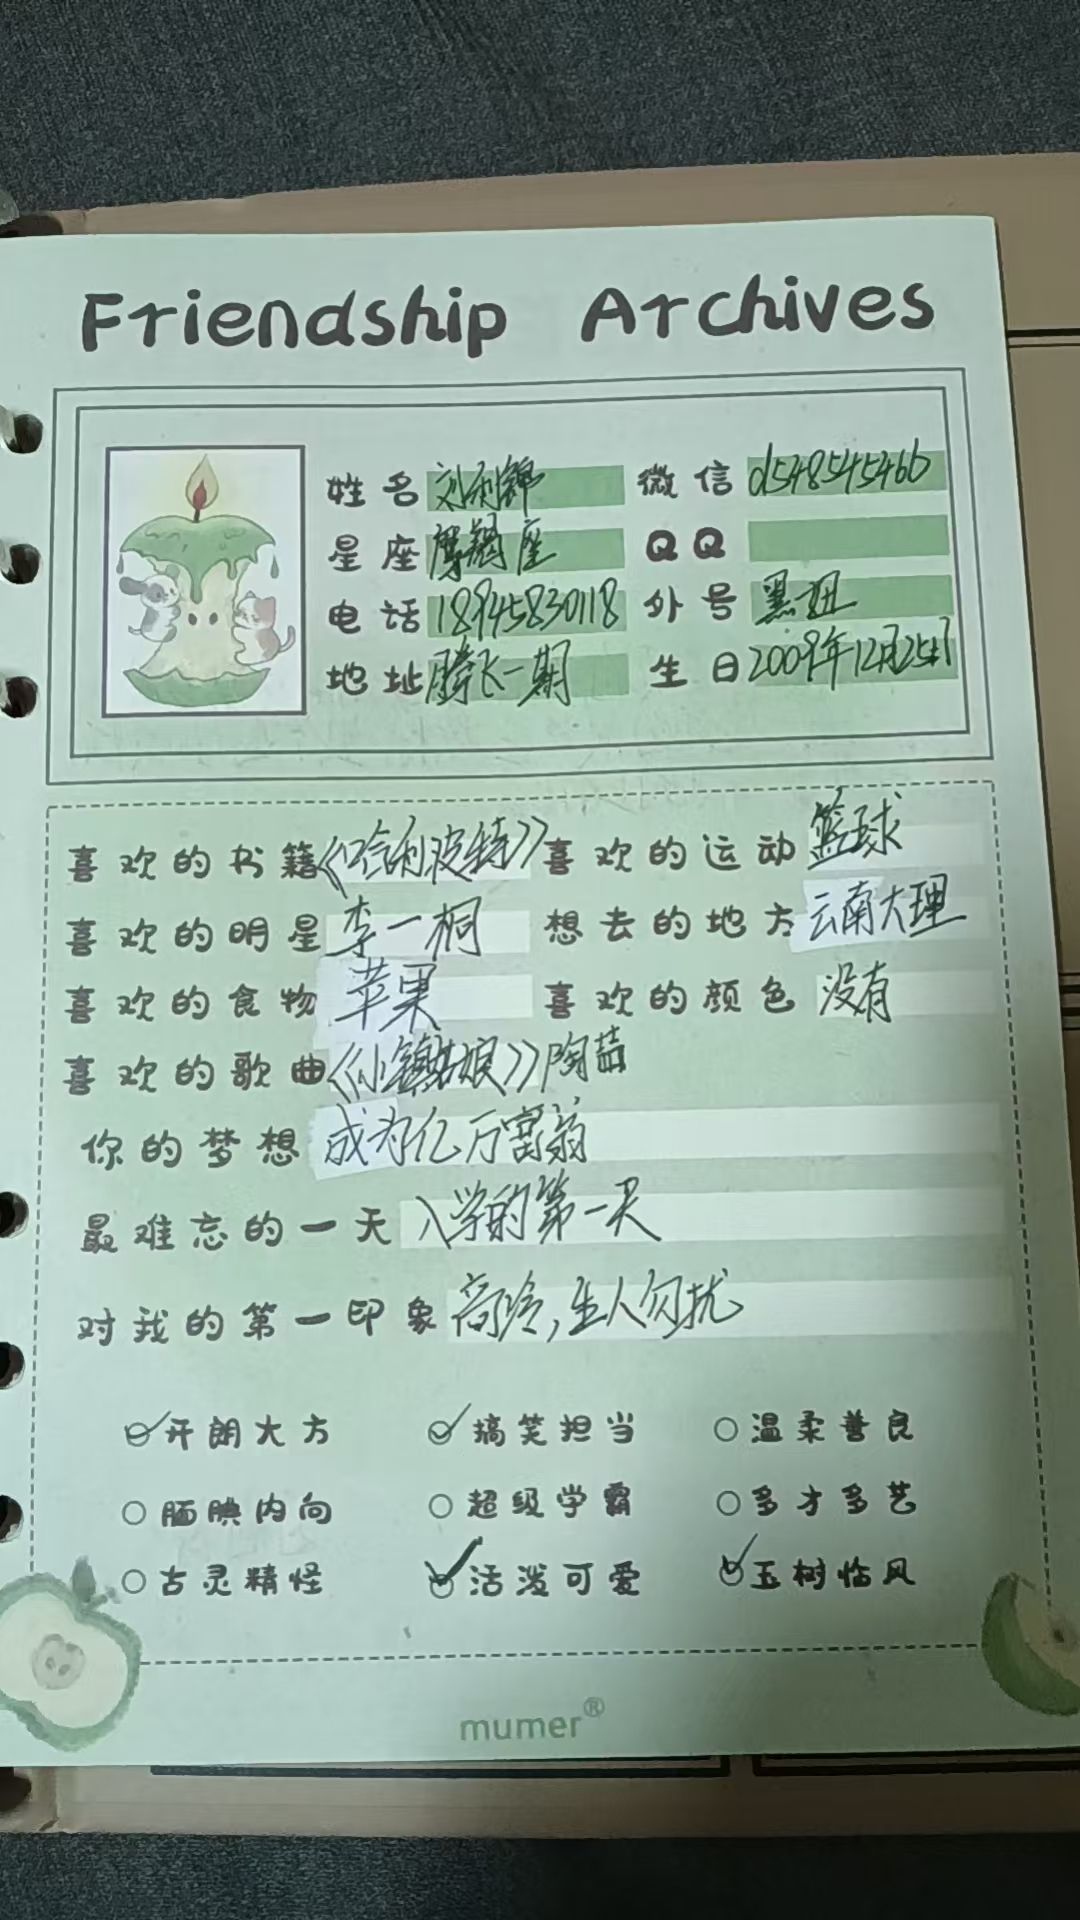 Friendship Archives
姓名 刘利锦 微信 d548545466
星座 摩羯座 QQ
电话 18945830118 外号 黑妞
地址 腾飞一期 生日 2009年12月25日
喜欢的书籍《哈利波特》 喜欢的运动 篮球
喜欢的明星 李一桐 想去的地方 云南大理
喜欢的食物 苹果 喜欢的颜色 没有
喜欢的歌曲《小镇姑娘》陶喆
你的梦想 成为亿万富翁
最难忘的一天 入学的第一天
对我的第一印象 高冷，生人勿扰
开朗大方 搞笑担当 温柔善良
腼腆内向 超级学霸 多才多艺
古灵精怪 活泼可爱 玉树临风
mumer®